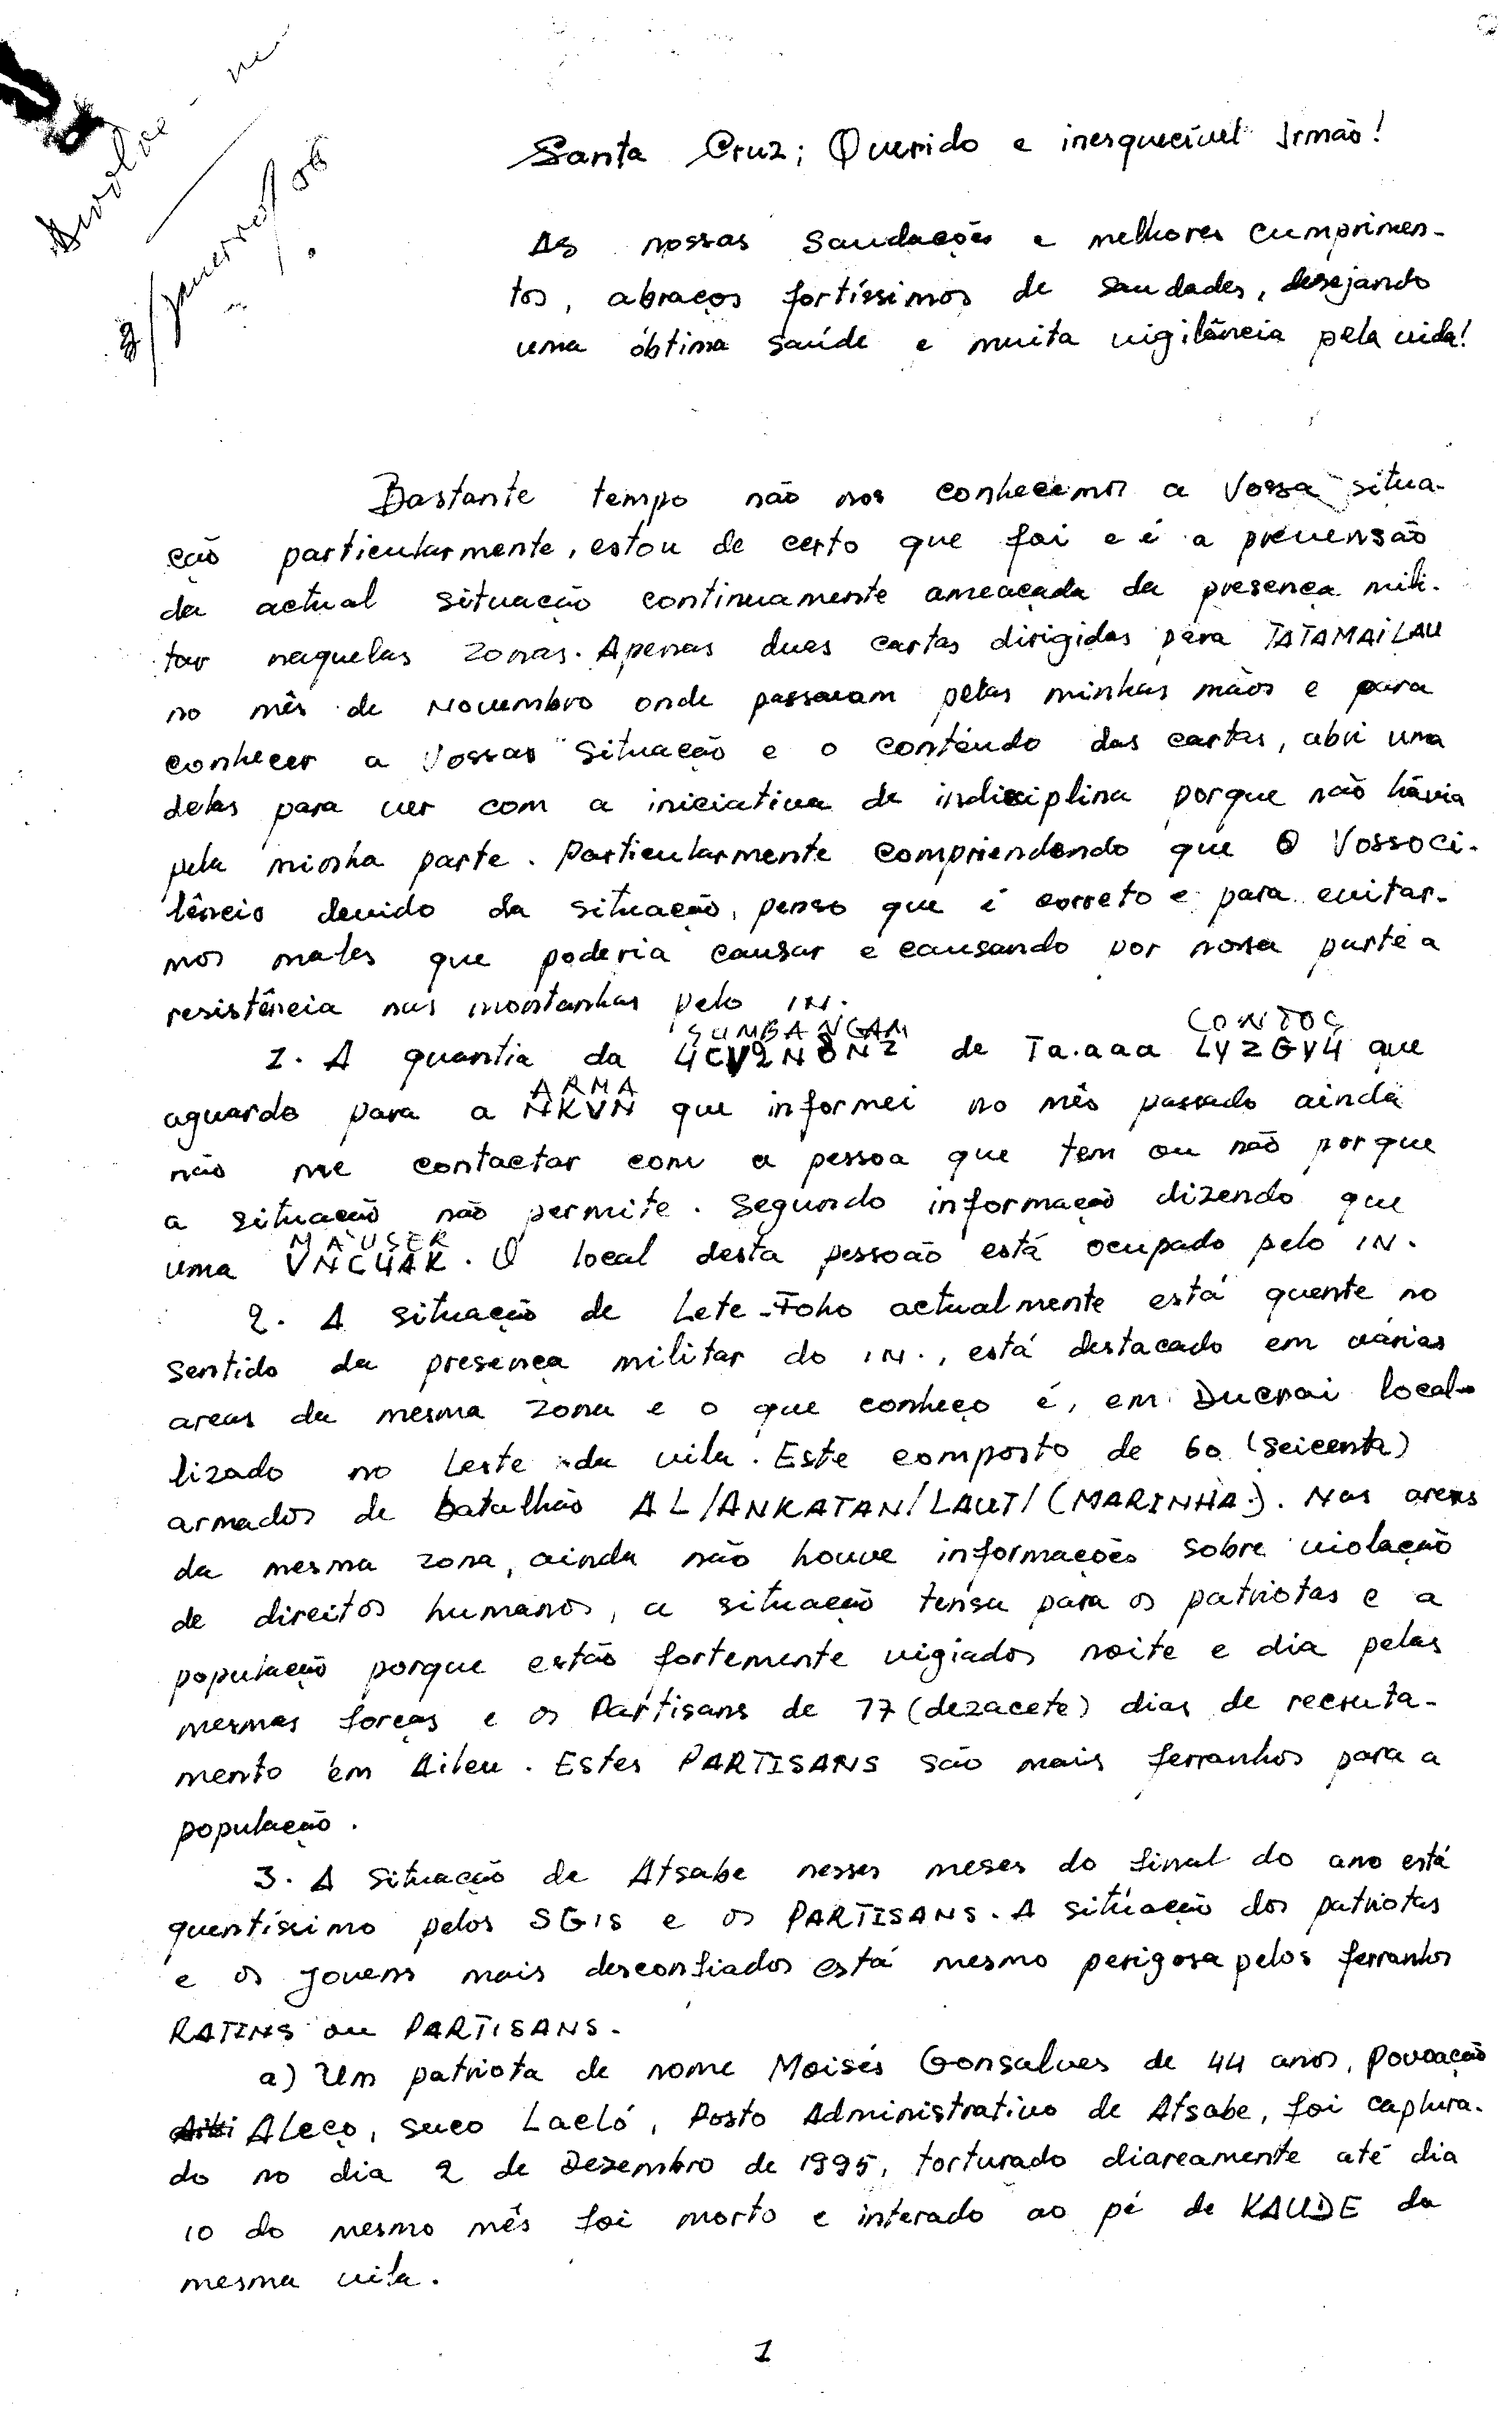 Santa Cruz; Querido e inesquecível Irmão!
As nossas saudações e melhores cumprimen-
tos, abraços fortíssimos de saudades, desejando
uma óbtima saúde e muita vigilância pela vida!
Bastante tempo não nos conhecemos a Vossa situa-
ção particularmente, estou de certo que foi e é a prevensão
da actual situação continuamente ameaçada da presença mili-
tar naquelas zonas. Apenas duas cartas dirigidas para TATAMAILAU
no mês de Novembro onde passaram pelas minhas mãos e para
conhecer a Vossas situação e o contéudo das cartas, abri uma
delas para ver com a iniciativa de indisciplina porque não hávia
pela minha parte. Particularmente compriendendo que o Vosso ci-
lêncio devido da situação, penso que é correto e para evitar-
mos males que poderia causar e causando por nossa parte a
resistência nas montanhas pelo IN.
SUMBANGAM CONTOS
1. A quantia da 4CV2N8NZ de Ta.aaa LYZGY4 que
ARMA
aguardo para a NKVN que informei no mês passado ainda
não me contactar com a pessoa que tem ou não porque
a situação não permite. Segundo informação dizendo que
MAUSER
uma VNC4AK. O local desta pessoão está ocupado pelo IN.
2. A situação de Lete-Foho actualmente está quente no
sentido da presença militar do IN., está destacado em várias
areas da mesma zona e o que conheço é, em Ducrai local-
lizado no Leste da vila. Este composto de 60 (seicenta)
armados de batalhão AL/ANKATAN/LAUT/(MARINHA.). Nas areas
da mesma zona, ainda não houve informações sobre violação
de direitos humanos, a situação tensa para os patriotas e a
população porque estão fortemente vigiados noite e dia pelas
mesmas forças e os Partisans de 17 (dezacete) dias de recruta-
mento em Aileu. Estes PARTISANS são mais ferranhos para a
população.
3. A situação de Atsabe nesses meses do final do ano está
quentíssimo pelos SGIS e os PARTISANS. A situação dos patriotas
e os jovens mais desconfiados está mesmo perigosa pelos ferranhos
RATINS ou PARTISANS.
a) Um patriota de nome Moisés Gonsalves de 44 anos, povoação
Aleço, suco Lacló, Posto Administrativo de Atsabe, foi captura-
do no dia 2 de Dezembro de 1995, torturado diareamente até dia
10 do mesmo mês foi morto e interado ao pé de KAUDE da
mesma vila.
1